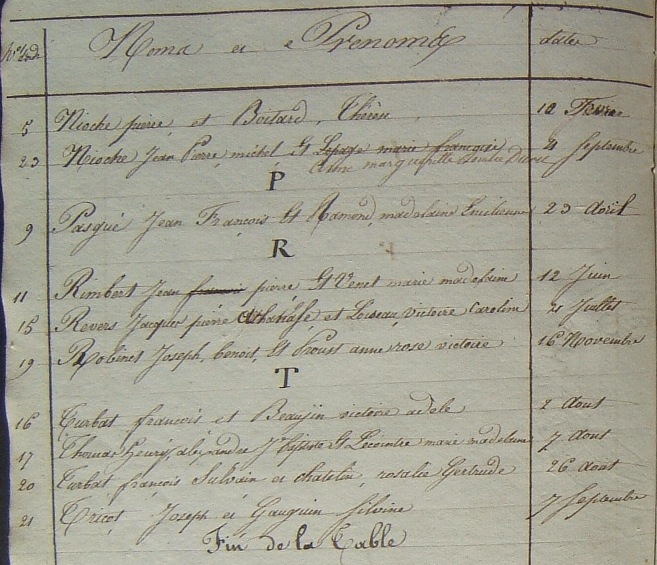 Noms et Prenoms dates
5 Nioche pierre et Boitard, Thérèse 10 Fevrier
23 Nioche Jean Pierre michel Et Lepage marie françoise 21 Septembre
Anne marguerite
P
9 Pasqué Jean François Et Ramond, madelaine Emilienne 23 Avril
R
11 Rimbert Jean francois pierre Et Venet marie madelaine 12 Juin
15 Revers Jacques pierre Athanase et Loiseau, victoire Caroline 21 Juillet
19 Robinet Joseph, benoit, Et Proust anne rose victoire 16 Novembre
T
16 Turbat francois et Beaujin victoire adele 2 Aout
17 Thomas henry, alexandre Jn Bptiste Et Lecointre marie madelaine 7 Aout
20 Turbat françois Sulvain et chatelin, rosalie Gertrude 26 Aout
21 Tricot Joseph et Gauguin Silvine 7 Septembre
Fin de la Table